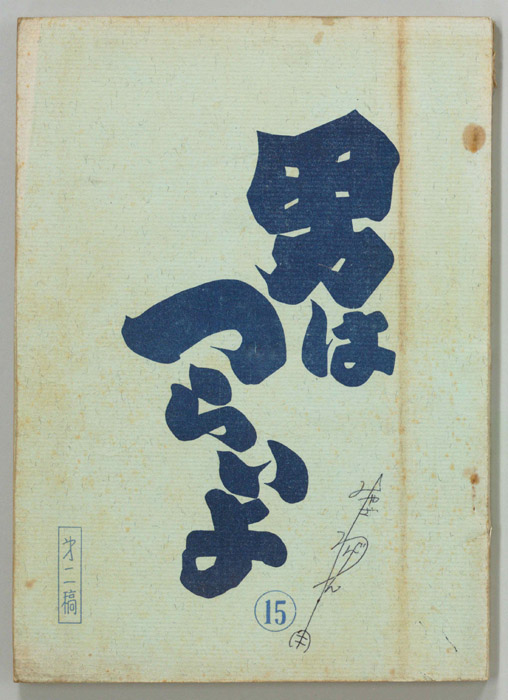 男は
つらいよ
15
第二稿